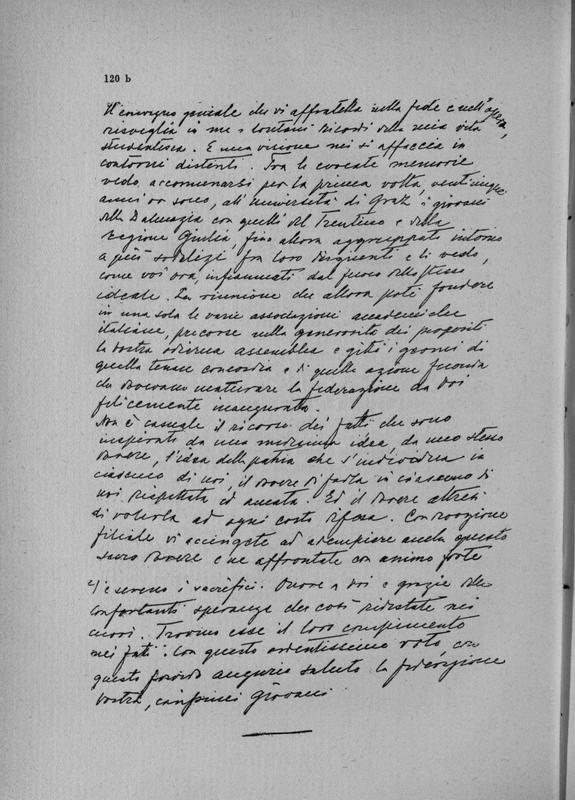 120 b
Il convegno geniale che vi affratella nella fede e nell'opera,
risveglia in me i lontani ricordi della mia vita
studentesca. E una visione mi si affaccia in
contorni distinti. Tra le evocate memorie
vedo accomunarsi per la prima volta, venticinque
anni or sono, all'università di Graz i giovani
della Dalmazia con quelli del Trentino e della
Regione Giulia, fino allora aggruppati intorno
a più sodalizi fra loro disgiunti e li vedo,
come voi ora, infiammati dal fuoco dello stesso
ideale. La riunione che allora potè fondere
in una sola le varie associazioni accademiche
italiane, precorse nella generosità dei propositi
la vostra odierna assemblea e gittò i germi di
quella tenace concordia e di quella azione feconda
che dovevano maturare la federazione da voi
felicemente inaugurata.
Non è casuale il ricorso dei fatti che sono
inspirati da una medesima idea, da uno stesso
dovere, l'idea della patria che s'indioddia in
ciascuno di noi, il dovere di farla in ciascuno di
noi rispettata ed amata. Ed il dovere altresì
di volerla ad ogni costo difesa. Con devozione
filiale vi accingete ad adempiere anche questo
sacro dovere e ne affrontate con animo forte
e sereno i sacrifici. Onore a voi e grazie delle
confortanti speranze che così ridestate nei
cuori. Trovino esse il loro compimento
nei fatti. Con questo ardentissimo voto, con
questo fervido augurio saluto la federazione
vostra, carissimi giovani